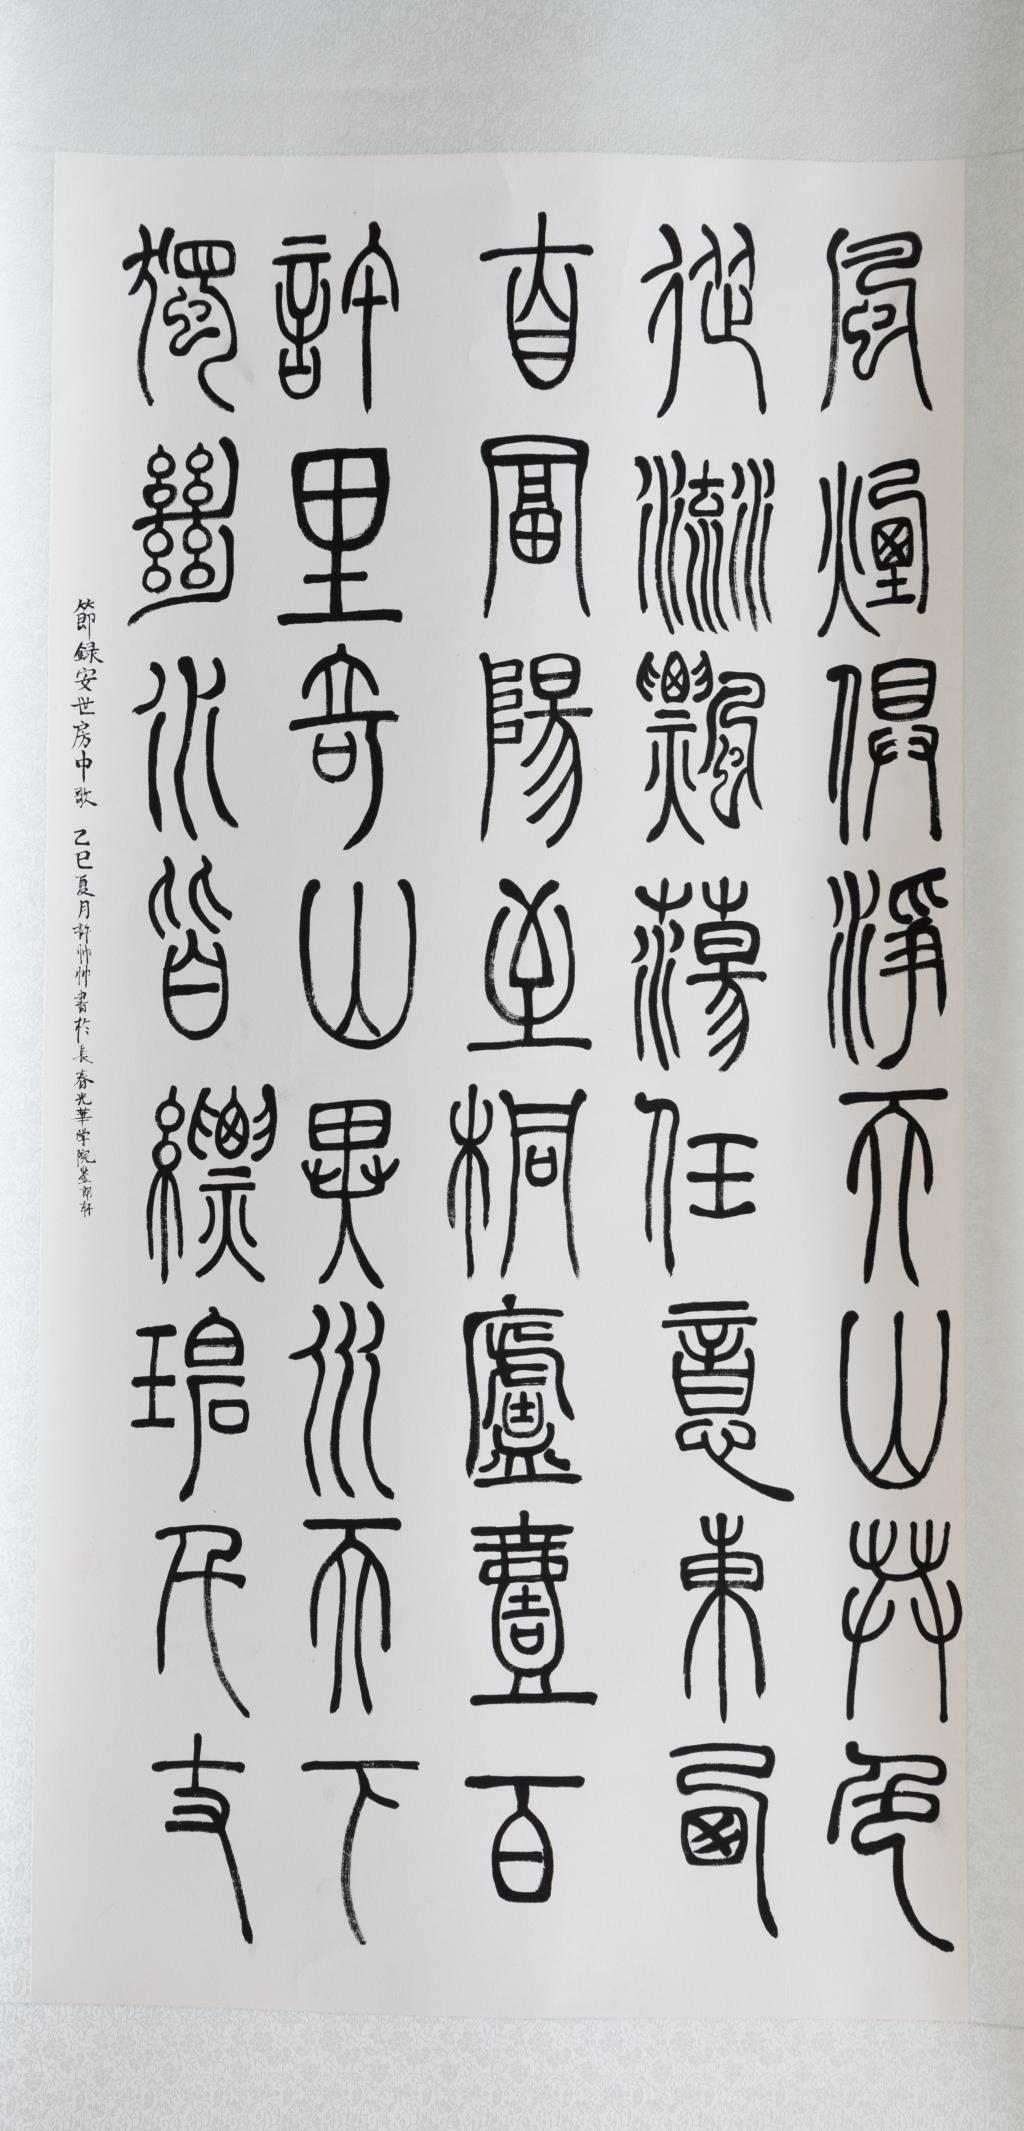 風煙俱淨天山共色
從流飄蕩任意東西
自富陽至桐廬壹百
許里奇山異水天下
獨絕水皆縹碧千丈
節録安世房中歌 乙巳夏月許帅帅書於長春光華学院